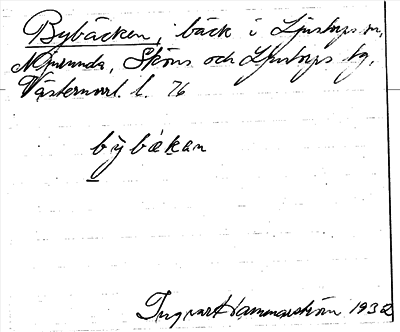 Bybäcken, bäck i Ljustorps sn,
Njurunda, Sköns och Ljustorps tg,
Västernorrl. l. 76
bybäkan
Ingvar Hammarström 1932